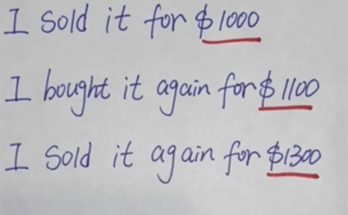 I sold it for $1000
I bought it again for $1100
I sold it again for $1300